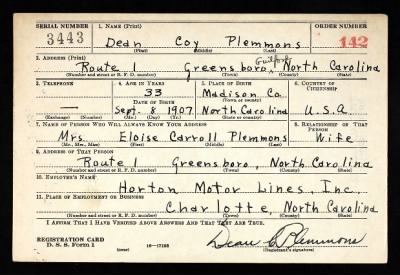 SERIAL NUMBER 1. NAME (Print) ORDER NUMBER
3443 Dean Coy Plemmons 142
(First) (Middle) (Last)
2. ADDRESS (Print)
Route 1 Greensboro, Guilford, North Carolina
(Number and street or R. F. D. number) (Town) (County) (State)
3. TELEPHONE 4. AGE IN YEARS 5. PLACE OF BIRTH 6. COUNTRY OF CITIZENSHIP
33 Madison Co.
DATE OF BIRTH (Town or county)
Sept. 8 1907 North Carolina U.S.A.
(Exchange) (Number) (Mo.) (Day) (Yr.) (State or country)
7. NAME OF PERSON WHO WILL ALWAYS KNOW YOUR ADDRESS 8. RELATIONSHIP OF THAT PERSON
Mrs. Eloise Carroll Plemmons Wife
(Mr., Mrs., Miss) (First) (Middle) (Last)
9. ADDRESS OF THAT PERSON
Route 1 Greensboro, North Carolina
(Number and street or R. F. D. number) (Town) (County) (State)
10. EMPLOYER'S NAME
Horton Motor Lines, Inc.
11. PLACE OF EMPLOYMENT OR BUSINESS
Charlotte, North Carolina
(Number and street or R. F. D. number) (Town) (County) (State)
I AFFIRM THAT I HAVE VERIFIED ABOVE ANSWERS AND THAT THEY ARE TRUE.
REGISTRATION CARD
D. S. S. FORM 1 (over) 16—17105 Dean C Plemmons
(Registrant's signature)